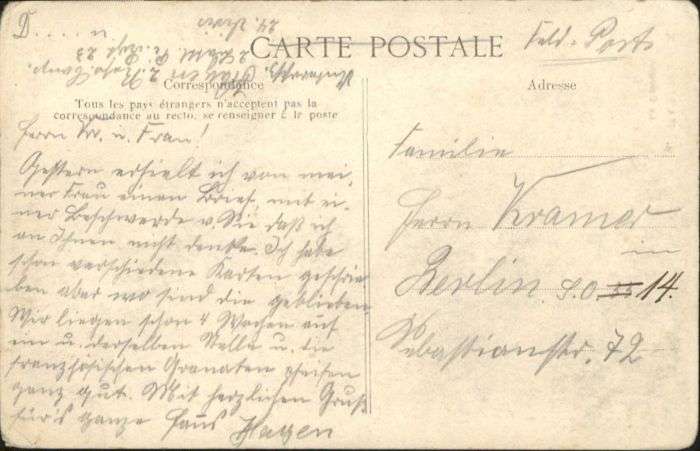 CARTE POSTALE
Feld-Post
Correspondance
Adresse
Tous les pays étrangers n'acceptent pas la
correspondance au recto, se renseigner à la poste
Herrn Kr. u. Frau!
Gestern erhielt ich von mei-
ner Frau einen Brief, mit ei-
ner Beschwerde v. Sie daß ich
an Ihnen nicht denke. Ich habe
schon verschiedene Karten geschrie
ben aber wo sind die geblieben
Wir liegen schon 4 Wochen auf
ein u. derselben Stelle u. die
französischen Granaten pfeifen
ganz gut. Mit herzlichen Gruß
für's ganze Haus Hagen
Familie
Herrn Kramer
in
Berlin S.O. 14.
Sebastianstr. 72